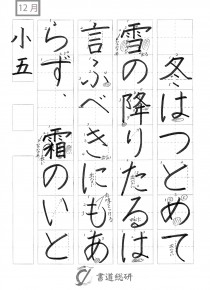 12月
冬はつとめて
雪の降りたるは
言ふべきにもあ
らず、霜のいと
小五
書道総研